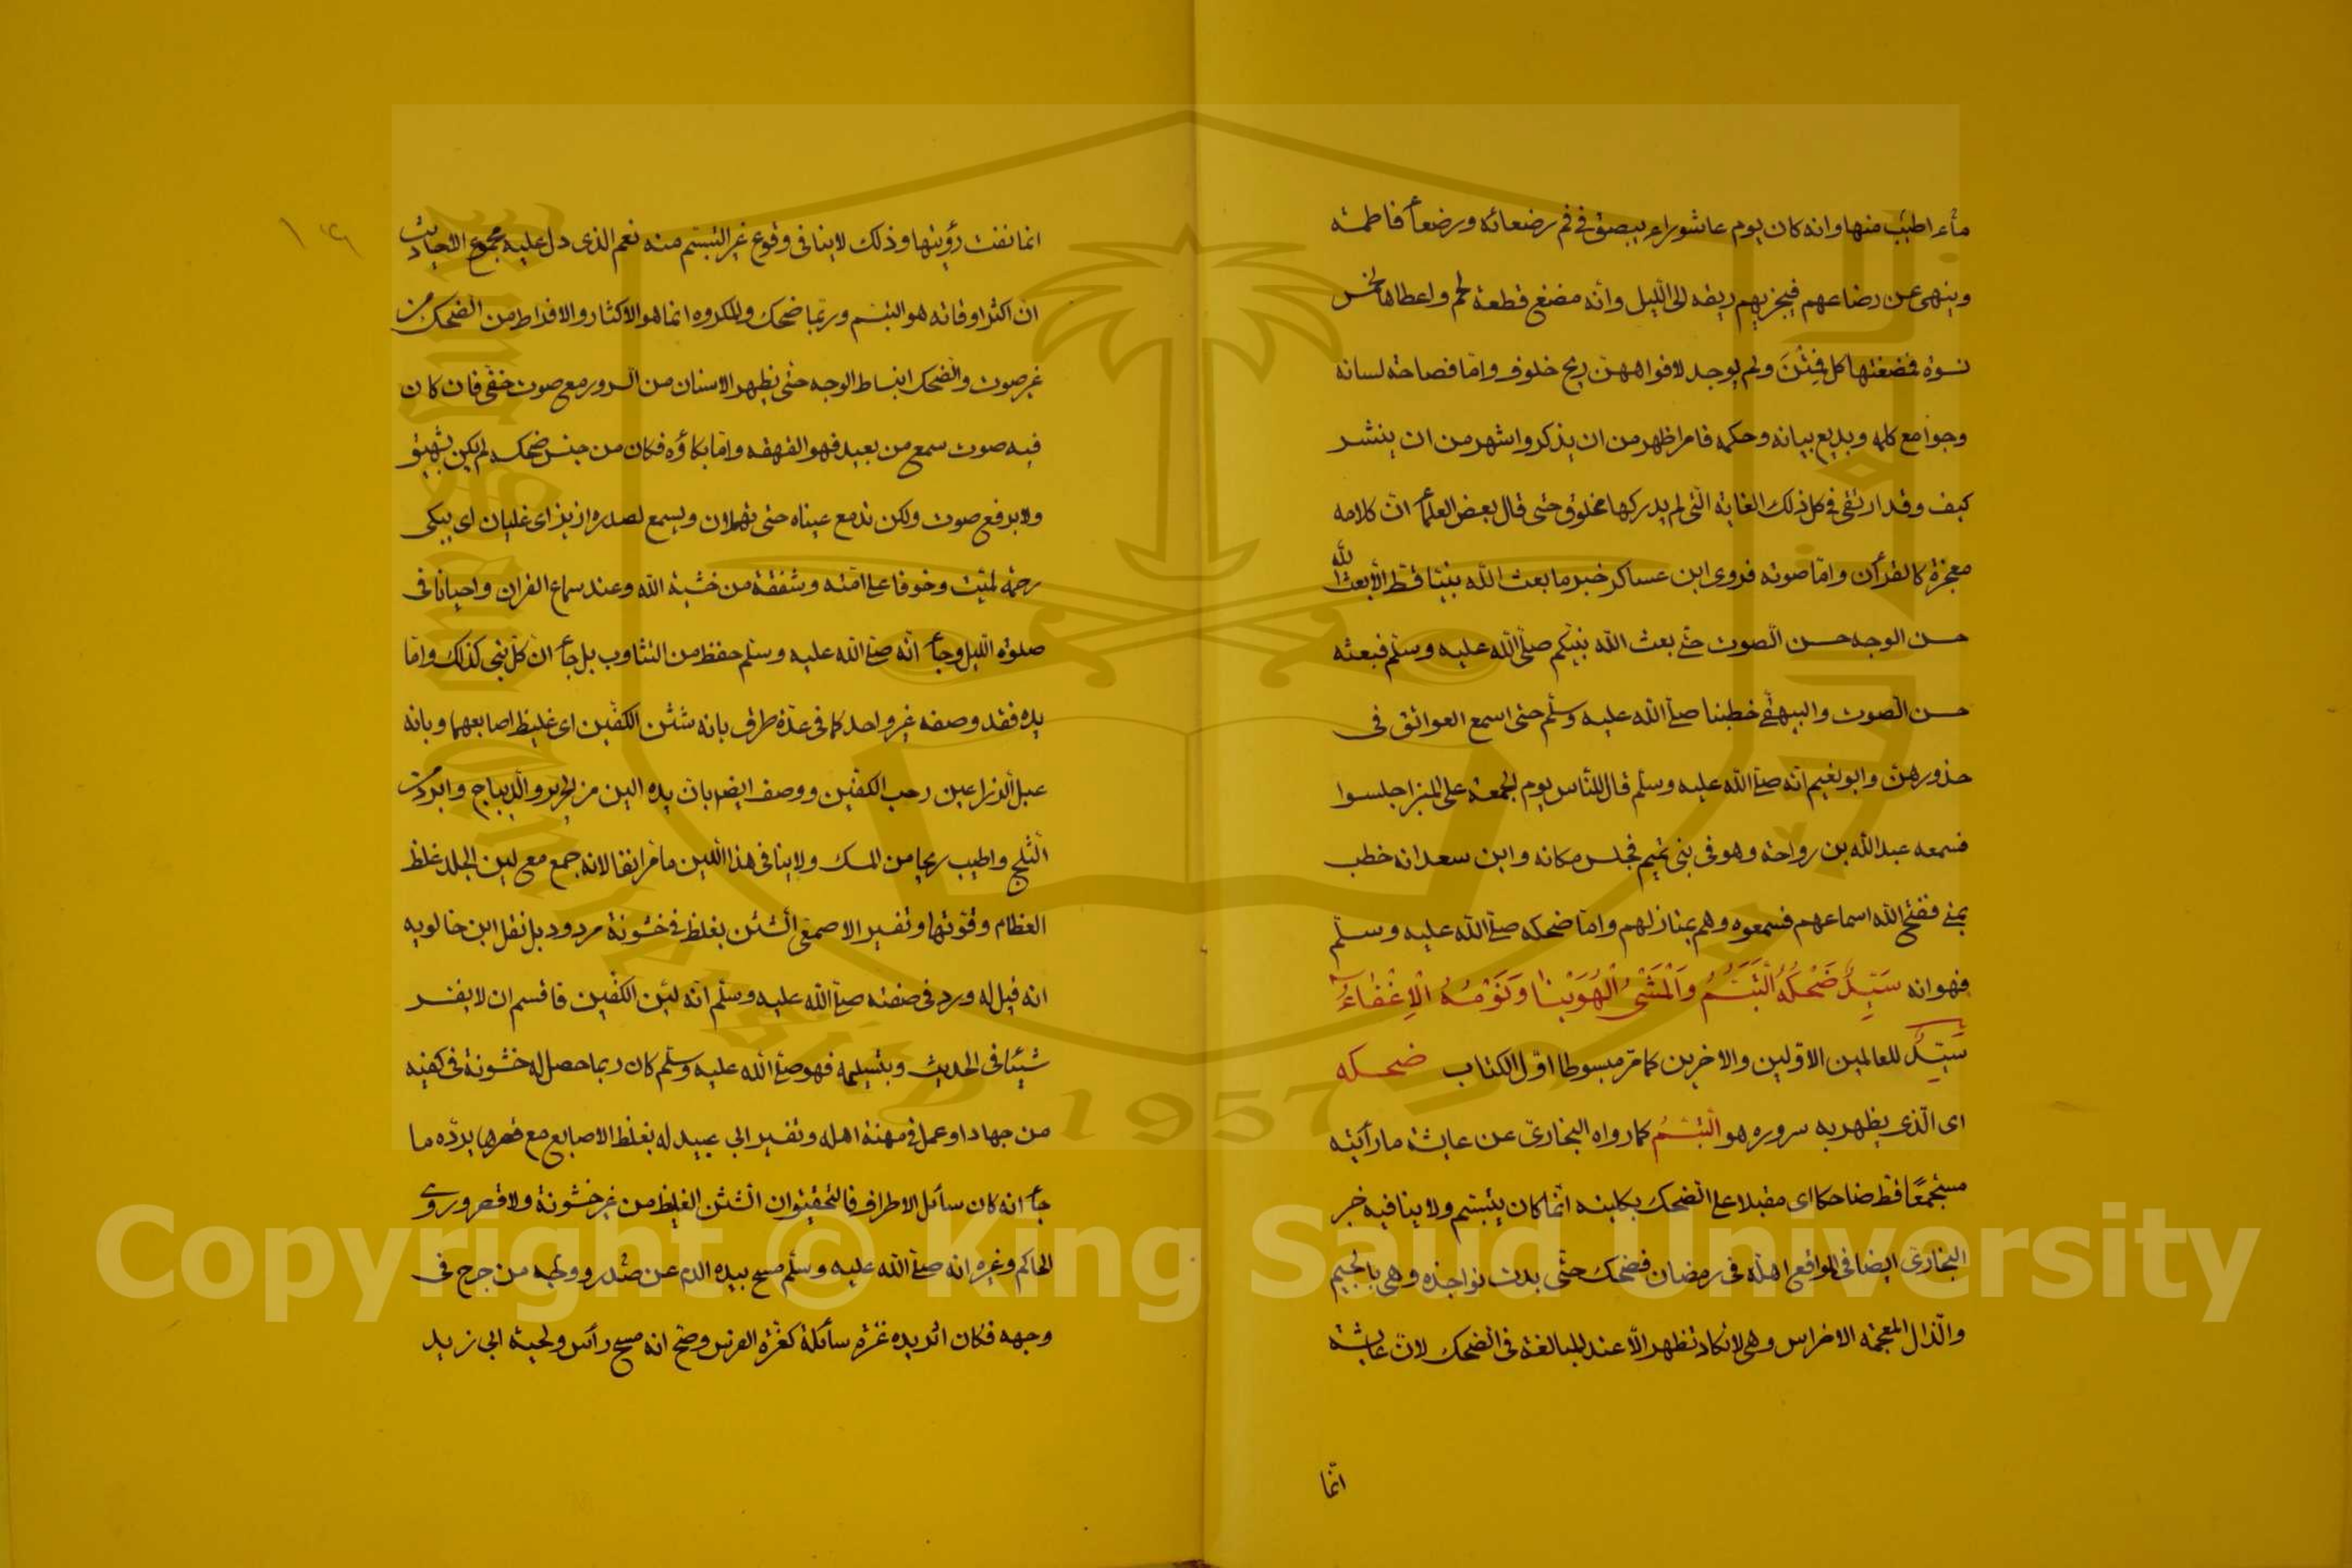 ماء اطيب منها وانه كان يوم عاشوراء يبصق في فم رضعائه ورضعاء فاطمة
وينهى عن رضاعهم فيجزيهم ريقه الى الليل وأنه مضغ قطعة لحم واعطاها لخمس
نسوة فمضغنها كل فِتُنَ ولم يوجد لافواههن ريح خلوف واما فصاحة لسانه
وجوامع كلمه وبديع بيانه وحكمه فامر اظهر من ان يذكر واشهر من ان ينشر
كيف وقد ارتقى في كل ذلك الغاية التى لم يدركها مخلوق حتى قال بعض العلماء ان كلامه
معجزة كالقرأن واما صوته فروى ابن عساكر خبر ما بعث الله نبيا قط الا بعثه الله
حسن الوجه حسن الصوت حتى بعث الله نبيكم صلى الله عليه وسلم فبعثه
حسن الصوت والبيهقى خطبنا صلى الله عليه وسلم حتى اسمع العواتق فى
خدورهن وابو نعيم انه صلى الله عليه وسلم قال للناس يوم الجمعة على المنبر اجلسوا
فسمعه عبد الله بن رواحة وهو فى بنى تميم فجلس مكانه وابن سعد انه خطب
بمنى ففتح الله اسماعهم فسمعوه وهم بمنازلهم واما ضحكه صلى الله عليه وسلم
فهو انه سَيِّدٌ ضَحْكُهُ التَّبَسُّمُ وَالْمَشْىُ الْهُوَيْنَا وَنَوْمُهُ الْاِغْفَاءُ
سَيِّدٌ للعالمين الاوّلين والاخرين كما مرّ مبسوطا اوّل الكتاب ضحكه
اى الّذى يظهر به سروره هو التَّبَسُّمُ كما رواه البخارىّ عن عايشة ما رأيته
مستجمعًا قط ضاحكا اى مقبلا على الضحك بكليته انّما كان يتبسّم ولا ينافيه خبر
البخارىّ ايضا فى المواقع اهله فى رمضان فضحك حتّى بدت نواجذه وهى بالجيم
والذّال المعجمة الاضراس وهى لا تكاد تظهر الاّ عند المبالغة فى الضحك لان عايشة
انما
انما نفت رؤيتها وذلك لا ينافى وقوع غير التبسّم منه نعم الذى دل عليه مجموع الاحاديث
ان اكثر اوقاته هو التبسم وربّما ضحك والمكروه انما هو الاكثار والافراط من الضحك من
غير صوت والضحك انبساط الوجه حتى يظهر الاسنان من السرور مع صوت خفى فان كان
فيه صوت سمع من بعيد فهو القهقهه واما بكاؤه فكان من جنس ضحكه لم يكن بشهيق
ولا برفع صوت ولكن تدمع عيناه حتى تهملان ويسمع لصدره ازيز اى غليان اى يبكى
رحمة لميّت وخوفا على امّته وشفقة من خشية الله وعند سماع القران واحيانا فى
صلوة الليل وجاء انّه صلى الله عليه وسلم حفظ من التثاوب بل جاء ان كلّ نبى كذلك وامّا
يده فقد وصفه غير واحد كما فى عدّة طرق بانه شثن الكفّين اى غليظ اصابعهما وبانه
عبل الذراعين رحب الكفّين ووصف ايضا بان يده الين من الحرير والدّيباج وابرد من
الثلج واطيب ريحا من المسك ولا ينافى هذا اللين ما مرّ انفا لانه جمع مع لين الجلد غلظ
العظام وقوّتها وتفسير الاصمعى الشثن بغلظ فى خشونة مردود بل نقل ابن خالويه
انه قيل له ورد فى صفته صلى الله عليه وسلم انّه ليّن الكفّين فاقسم ان لا يفسر
شيئا فى الحديث وبتسليمه فهو صلى الله عليه وسلّم كان ربما حصل له خشونة فى كفيه
من جهاد او عمل فى مهنة اهله وتفسير ابى عبيد له بغلظ الاصابع مع قصرها يردّه ما
جاء انه كان سائل الاطراف فالتحقيق ان الشثن الغليظ من غير خشونة ولا قصر وروى
الحاكم وغيره انه صلى الله عليه وسلّم مسح بيده الدم عن صدر ووجه من جرح فى
وجهه فكان اثر يده غرّة سائلة كغرّة الفرس وصح انه مسح رأس ولحية ابى زيد
Copyright © King Saud University
1957